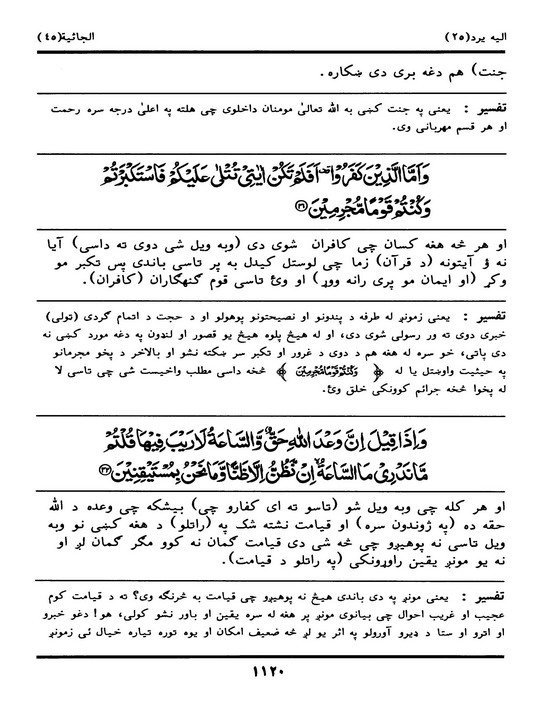 الیه یرد(۲۵) الجاثیة(۴۵)
جنت) هم دغه بری دی ښکاره.
تفسیر : یعنی په جنت کښې به الله تعالیٰ مومنان داخلوي چې هلته په اعلیٰ درجه سره رحمت
او هر قسم مهربانی وی.
وَاَمَّا الَّذِيْنَ كَفَرُوْا اَفَلَمْ تَكُنْ اٰيٰتِيْ تُتْلٰى عَلَيْكُمْ فَاسْتَكْبَرْتُمْ
وَكُنْتُمْ قَوْمًا مُّجْرِمِيْنَ ﴿۳۱﴾
او هر څه هغه کسان چې کافران شوی دی (وبه ویل شی دوی ته داسې) آیا
نه ؤ آیتونه (د قرآن) زما چې لوستل کیدل به پر تاسې باندې پس تکبر مو
وکړ (او ایمان مو پرې رانه ووړ) او وئ تاسې قوم ګنهګاران (کافران).
تفسیر : یعنی زمونږ له طرفه د پندونو او نصیحتونو پوهولو او د حجت د اتمام ګردې (تولې)
خبرې دوی ته ور رسولې شوې دی، او له هیڅ پلوه هیڅ یو قصور او لنډون په دغه مورد کښې نه
دی پاتې، خو سره له هغه هم د دوی د غرور او تکبر سر ښکته نشو او بالاخر د پخو مجرمانو
په حیثیت واوښتل یا له ﴿ وَكُنْتُمْ قَوْمًا مُّجْرِمِيْنَ ﴾ څخه داسې مطلب واخیست شی چې تاسې لا
له پخوا څخه جرائم کوونکی خلق وئ.
وَاِذَا قِيْلَ اِنَّ وَعْدَ اللهِ حَقٌّ وَّالسَّاعَةُ لَا رَيْبَ فِيْهَا قُلْتُمْ
مَّا نَدْرِيْ مَا السَّاعَةُ اِنْ نَّظُنُّ اِلَّا ظَنًّا وَّمَا نَحْنُ بِمُسْتَيْقِنِيْنَ ﴿۳۲﴾
او هر کله چې وبه ویل شو (تاسو ته ای کفارو چې) بیشکه چې وعده د الله
حقه ده (په ژوندون سره) او قیامت نشته شک په (راتلو) د هغه کښې نو وبه
ویل تاسې نه پوهیږو چې څه شی دی قیامت ګمان نه کوو مګر ګمان لږ او
نه یو مونږ یقین راوړونکی (په راتلو د قیامت).
تفسیر : یعنی مونږ په دې باندې هیڅ نه پوهیږو چې قیامت به څرنګه وی؟ ته د قیامت کوم
عجیب او غریب احوال چې بیانوې مونږ پر هغه له سره یقین او باور نشو کولی، هو! دغو خبرو
او اترو او ستا د ډیرو آورولو په اثر یو لږ څه ضعیف امکان او یوه توره تیاره خیال ئې زمونږ
۱۱۲۰